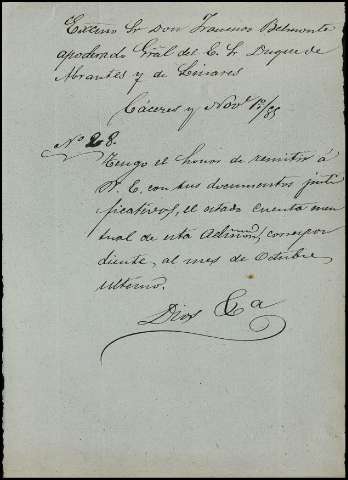 Excmo Sr Don Francisco Belmonte
apoderado Gral del E. Sr Duque de
Abrantes y de Linares
Cáceres y Novbre 1º/85
Nº 28.
Tengo el honor de remitir á
V. E. con sus documentos justi
ficativos, el estado cuenta men
sual de esta Admon, correspon
diente al mes de Octubre
ultimo.
Dios &a